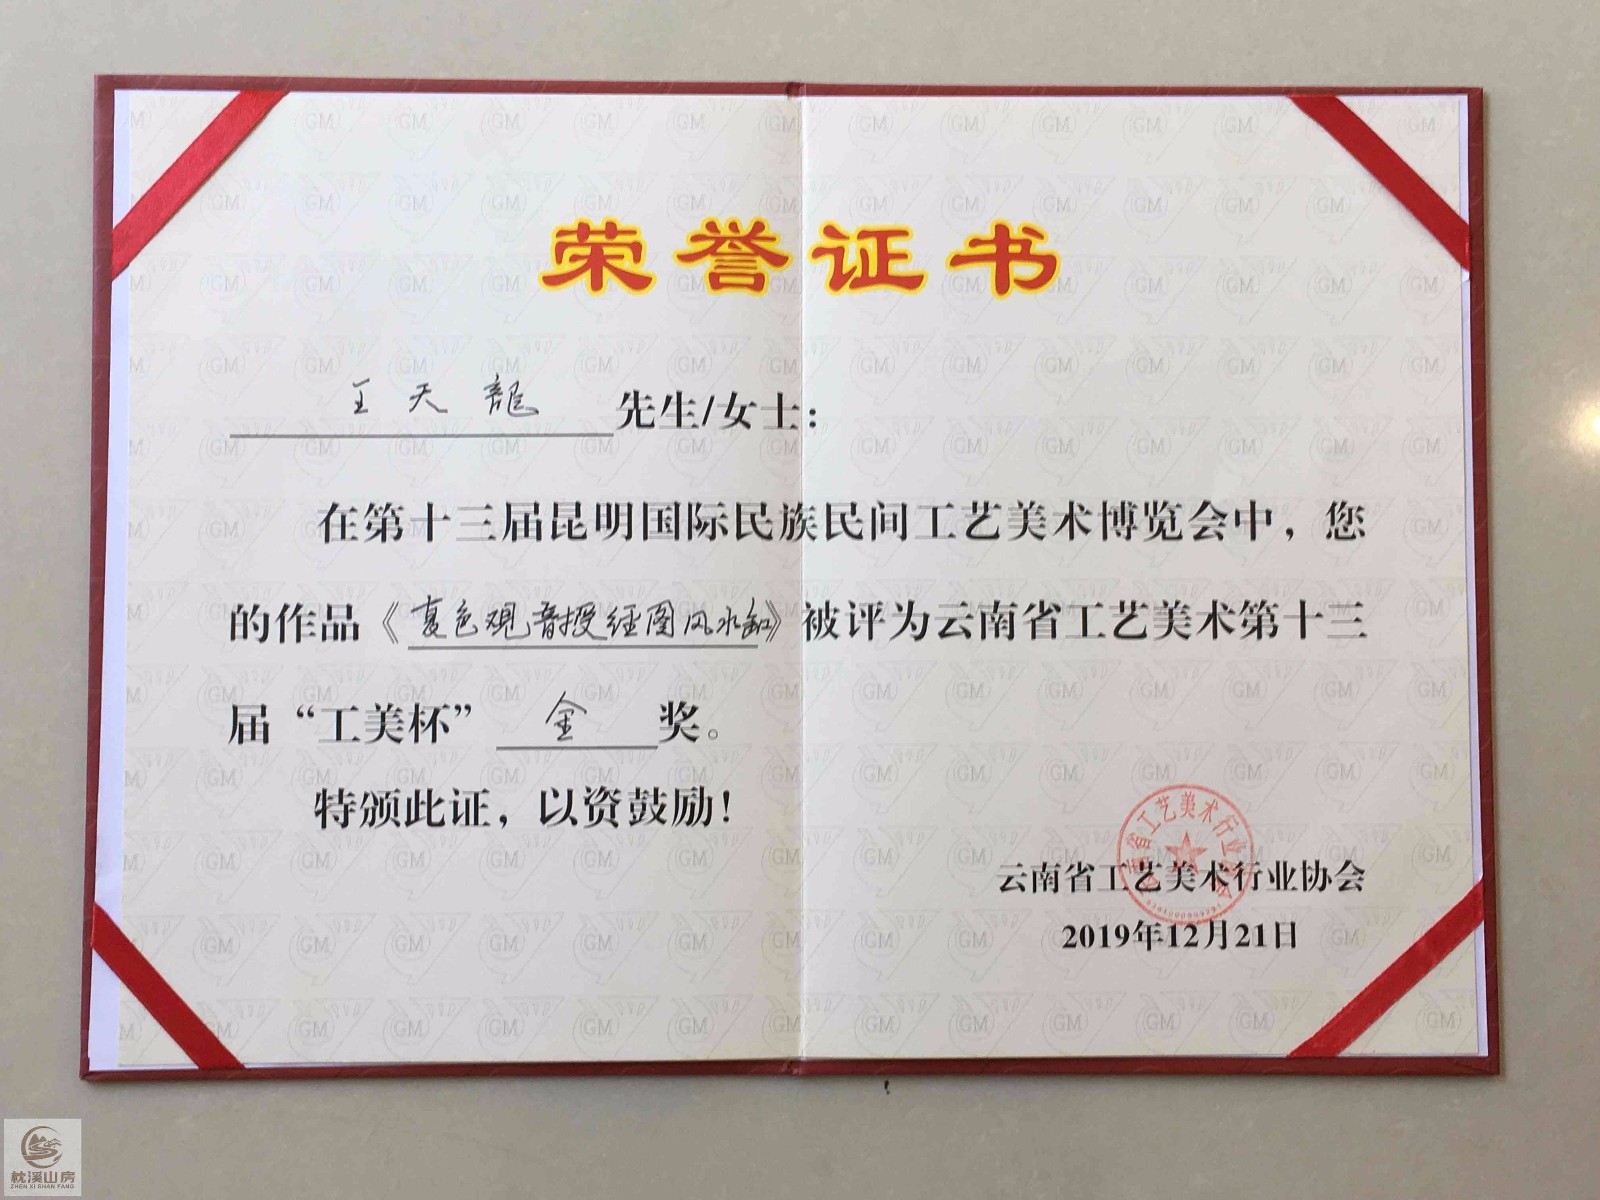 荣誉证书
王天龍 先生/女士：
在第十三届昆明国际民族民间工艺美术博览会中，您
的作品《夏色观音授经图风水缸》被评为云南省工艺美术第十三
届“工美杯” 金 奖。
特颁此证，以资鼓励！
云南省工艺美术行业协会
2019年12月21日
枕溪山房
ZHEN XI SHAN FANG
GM